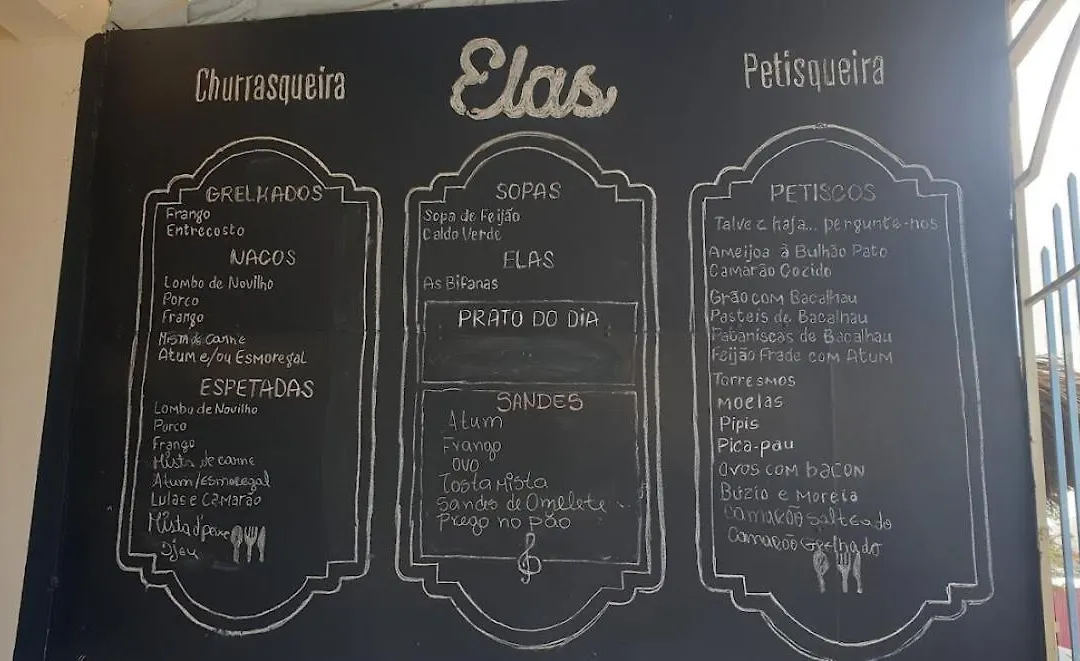 Churrasqueira
Elas
Petisqueira
GRELHADOS
Frango
Entrecosto
NACOS
Lombo de Novilho
Porco
Frango
Mista de carne
Atum e/ou Esmoregal
ESPETADAS
Lombo de Novilho
Porco
Frango
Mista de carne
Atum/Esmoregal
Lulas e Camarão
Mista d'peixe
Djeu
SOPAS
Sopa de Feijão
Caldo Verde
ELAS
As Bifanas
PRATO DO DIA
SANDES
Atum
Frango
OVO
Tosta Mista
Sandes de Omelete
Prego no pão
PETISCOS
Talvez haja... pergunte-nos
Ameijoa à Bulhão Pato
Camarão Cozido
Grão com Bacalhau
Pasteis de Bacalhau
Pataniscas de Bacalhau
Feijão Frade com Atum
Torresmos
Moelas
Pipis
Pica-pau
Ovos com bacon
Búzio e Moreia
Camarão Salteado
Camarão Grelhado